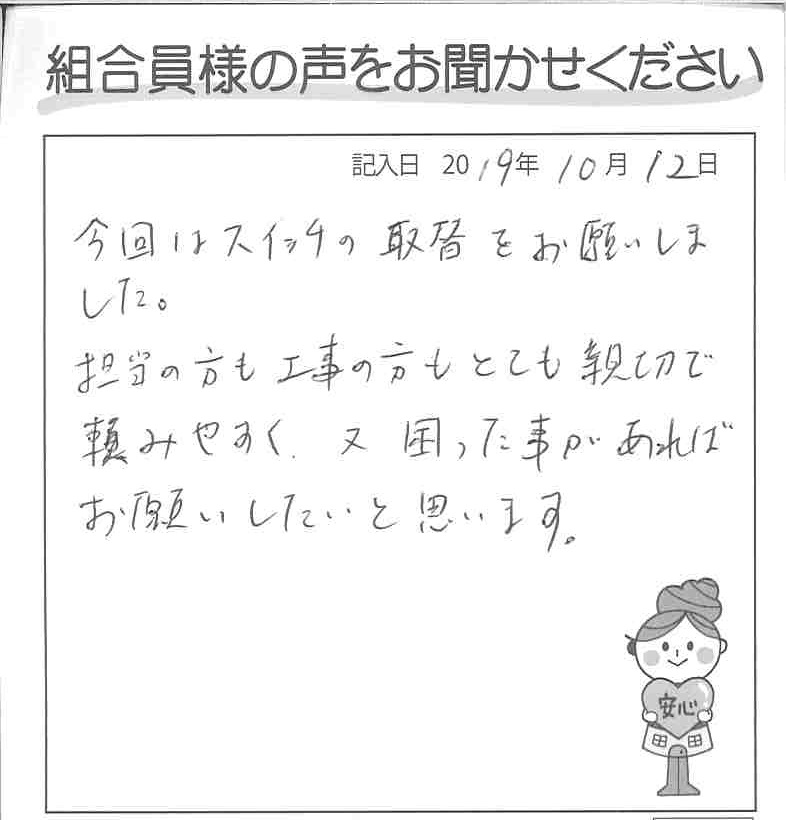 組合員様の声をお聞かせください
記入日 2019年10月12日
今回はスイッチの取替をお願いしま
した。
担当の方も工事の方もとても親切で
頼みやすく、又困った事があれば
お願いしたいと思います。
安心